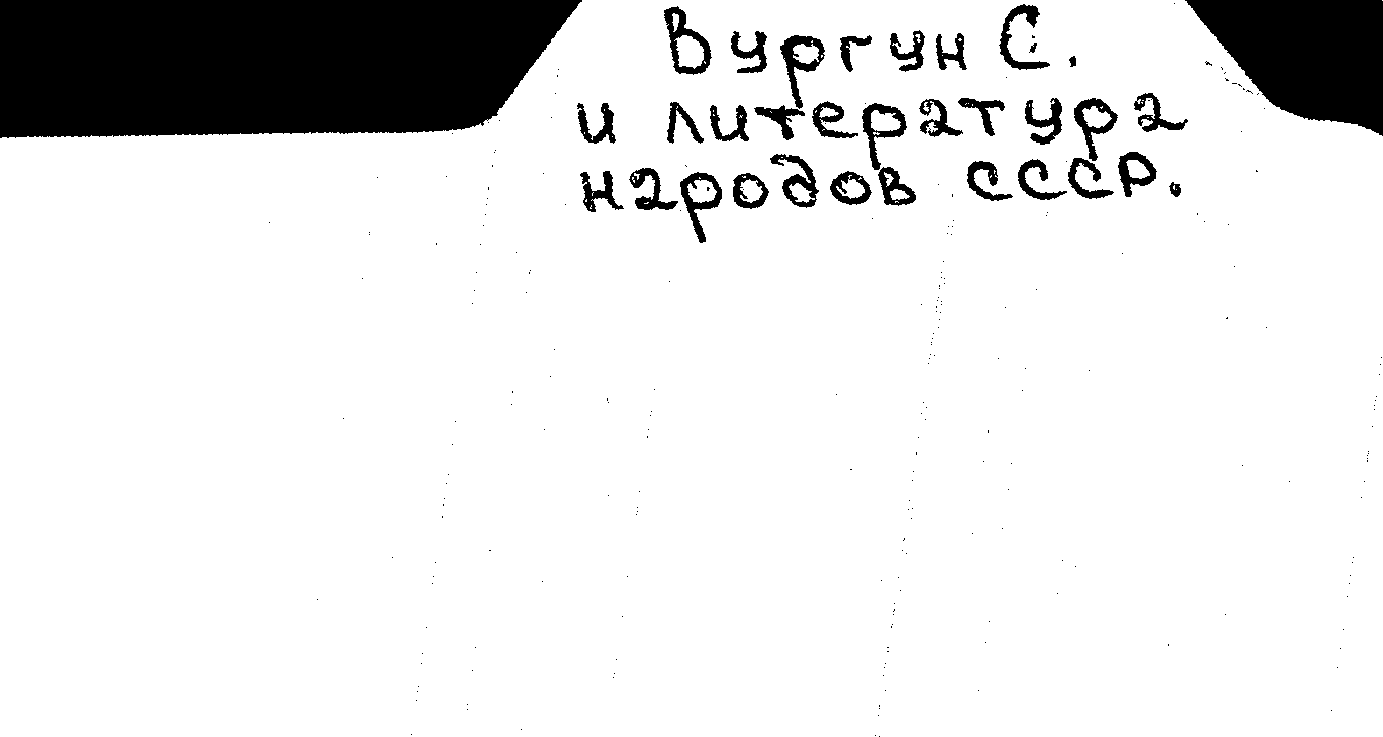 Вургун С.
и литература
народов СССР.